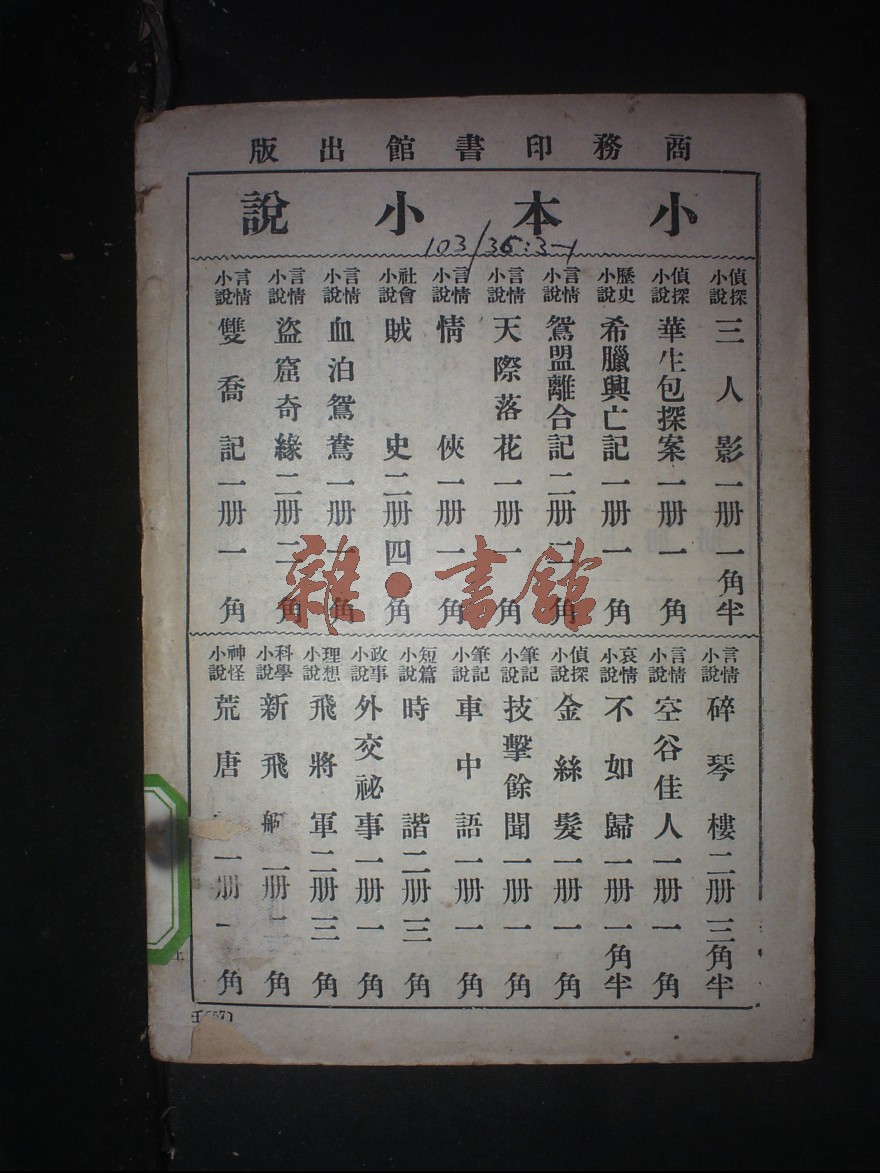 商務印書館出版
小本小說
103/36:3-1
偵探小說 三人影 一册 一角半
偵探小說 華生包探案 一册 一角
歷史小說 希臘興亡記 一册 一角
言情小說 鴛盟離合記 二册 二角
言情小說 天際落花 一册 一角
言情小說 情俠 一册 一角
社會小說 賊史 二册 四角
言情小說 血泊鴛鴦 一册 一角
言情小說 盜窟奇緣 二册 二角
言情小說 雙喬記 一册 一角
言情小說 碎琴樓 二册 三角半
言情小說 空谷佳人 一册 一角
哀情小說 不如歸 一册 一角半
偵探小說 金絲髮 一册 一角
筆記小說 技擊餘聞 一册 一角
筆記小說 車中語 一册 一角
短篇小說 時諧 二册 三角
政事小說 外交祕事 一册 一角
理想小說 飛將軍 二册 三角
科學小說 新飛艇 册 二角
神怪小說 荒唐 一册 一角
雜·書館